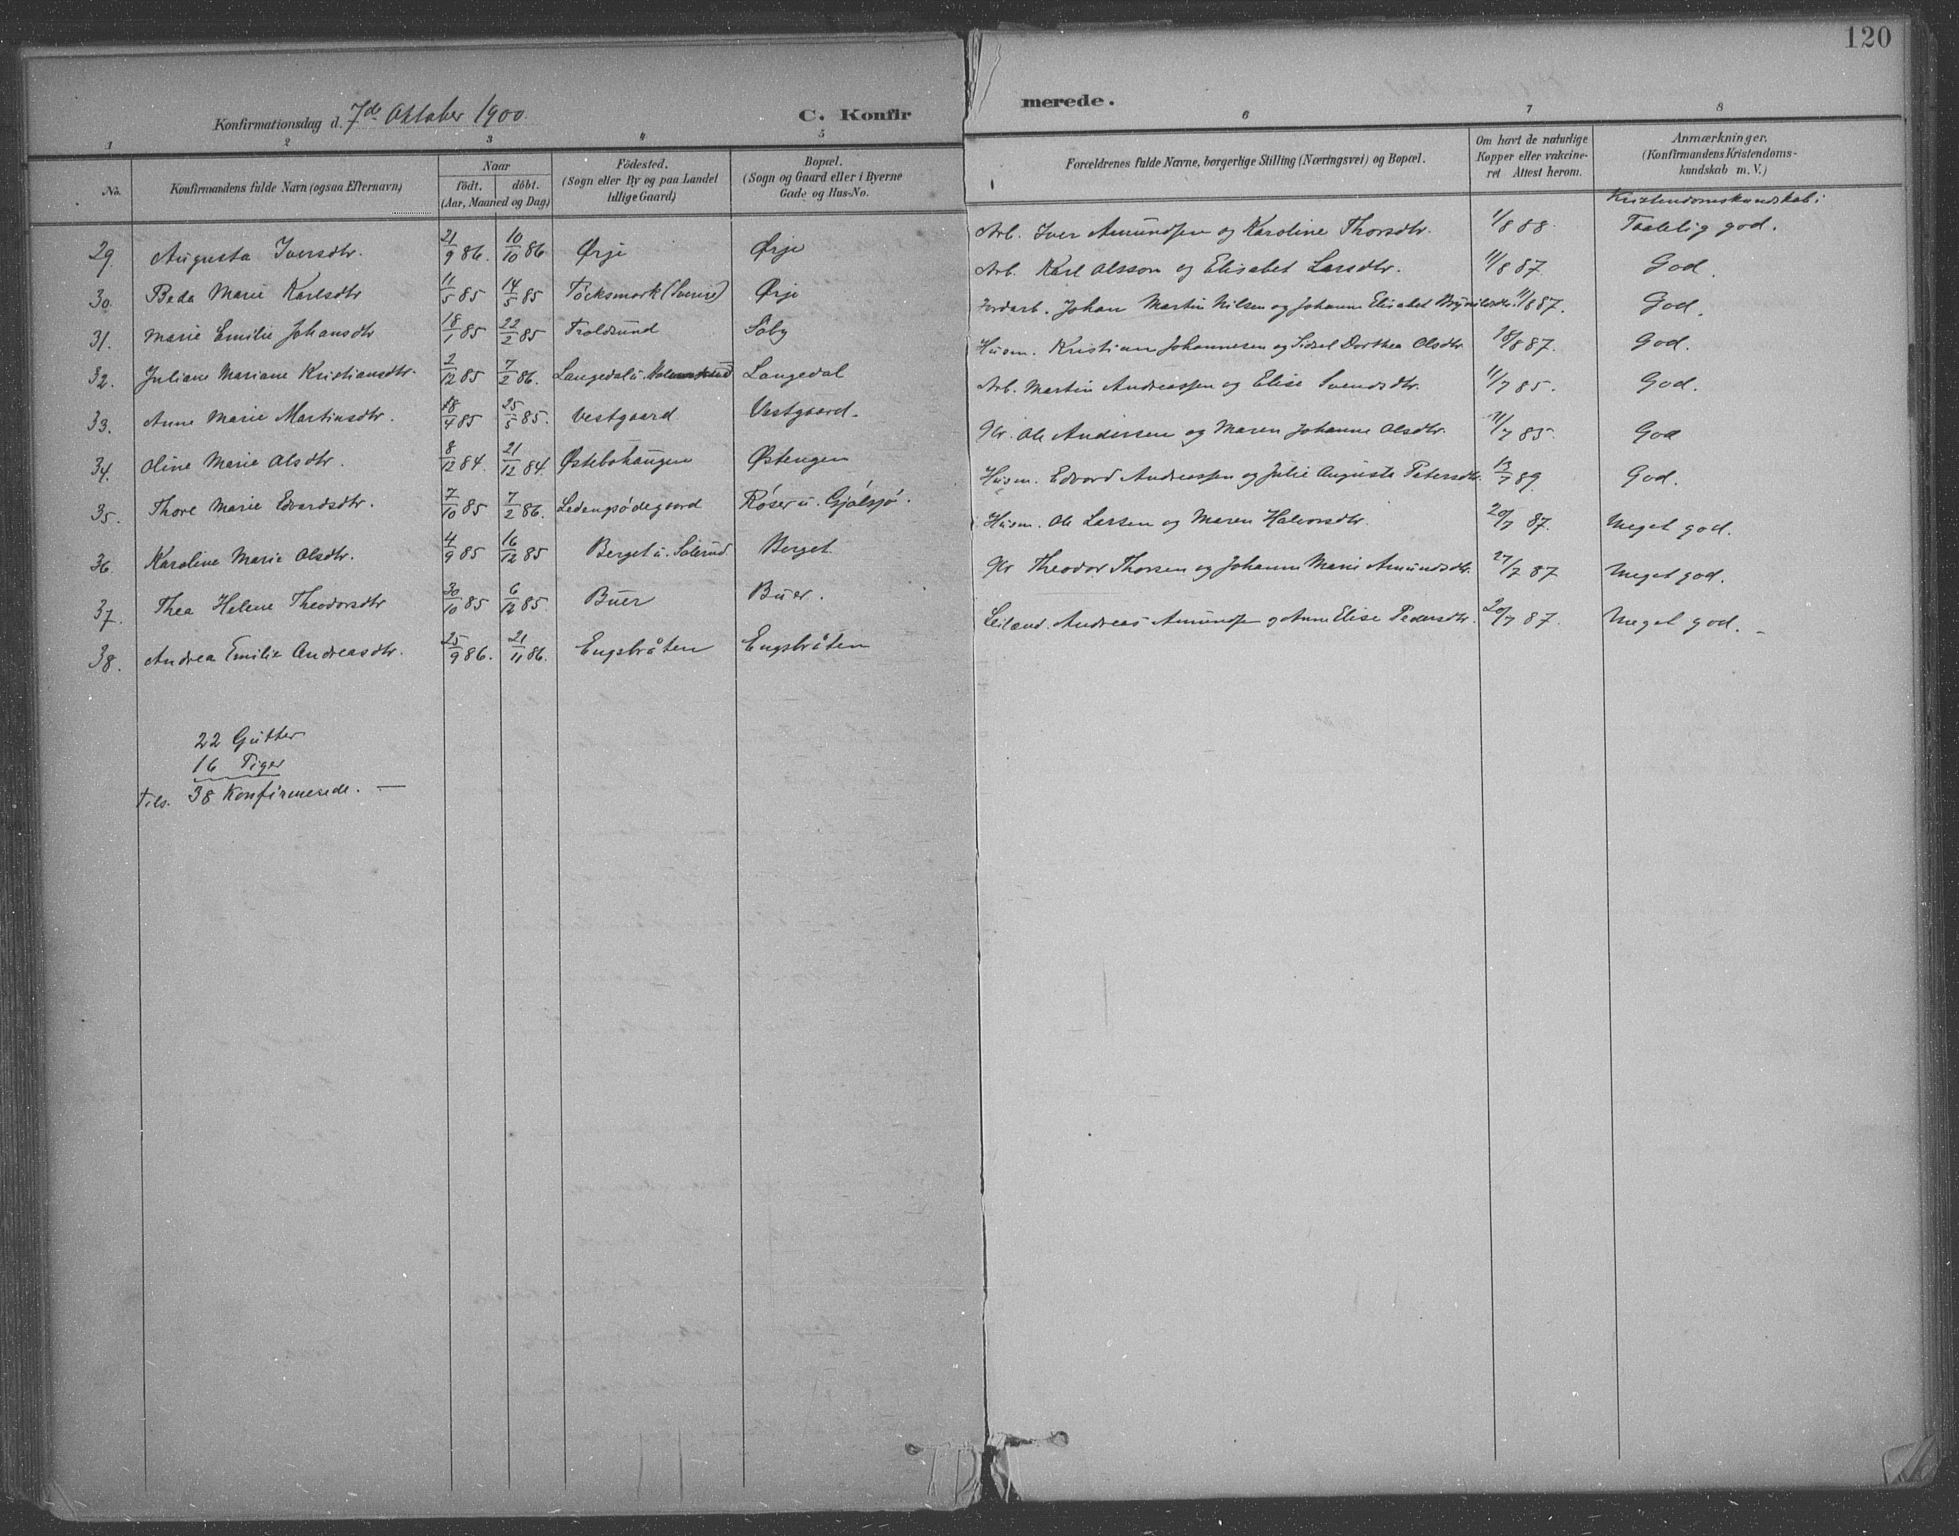 120
Konfirmationsdag d. 7de Oktober 1900. C. Konfir merede.
1 2 3 4 5 6 7 8
No. Konfirmandens fulde Navn (ogsaa Efternavn) Naar födt. döbt. (Aar, Maaned og Dag) Födested. (Sogn eller By og paa Landet tillige Gaard) Bopæl. (Sogn og Gaard eller i Byerne Gade og Hus-No. Forældrenes fulde Navne, borgerlige Stilling (Næringsvei) og Bopæl. Om havt de naturlige Kopper eller vakcineret Attest herom. Anmærkninger. (Konfirmandens Kristendomskundskab m. V.)
Kristendomskundskab:
29. Augusta Iversdtr. 21/9 86. 10/10 86 Ørje Ørje Arb. Iver Amundsen og Karoline Thorsdtr. 1/8 88. Taalelig god.
30. Beda Marie Karlsdtr 11/5 85 14/5 85 Töcksmark (Sverige) Ørje Arb. Karl Olsson og Elisabet Larsdtr. 11/8 87. God.
31. Marie Emilie Johansdtr 18/1 85 22/2 85 Troldsund Söby Jordarb. Johan Martin Nilsen og Johanne Elisabet 11/8 87. God.
32. Juliane Mariane Kristiansdtr. 2/12 85 7/2 86. Langedal u. Langedal Husm. Kristian Johannesen og Sidsel Dorthea Olsdtr 18/8 87. God.
33. Anne Marie Martinsdtr. 18/4 85 25/5 85. Vestgaard Vestgaard. Arb. Martin Andreassen og Elise Svendsdtr. 11/7 85. God.
34. Oline Marie Olsdtr. 8/12 84. 21/12 84. Østebohaugen Østengen Gr. Ole Andersen og Maren Johanne Olsdtr. 11/7 85. God
35. Thore Marie Edvardsdtr. 7/10 85 7/2 86. Ledengsödegaard Röser u. Gjölsjö. Husm. Edvard Andreassen og Julie Augusta Petersdtr. 13/7 89. God.
36. Karoline Marie Olsdtr. 4/9 85 16/12 85 Berget u. Solerud Berget Husm. Ole Larsen og Maren Halvorsdtr. 20/7 87. Meget god.
37. Thea Helene Theodorsdtr 30/10 85 6/12 85. Buer Buer. Gr Theodor Thorsen og Johanne Marie Amundsdtr. 27/7 87 Meget god.
38. Andrea Emilie Andreasdtr. 25/9 86. 21/11 86. Engsbråten Engsbråten Leilænd. Andreas Amundsen og Anne Elise Pedersdtr. 20/7 87. Meget god. –
22 Gutter
16 Piger
Tils. 38 Konfirmerede. —